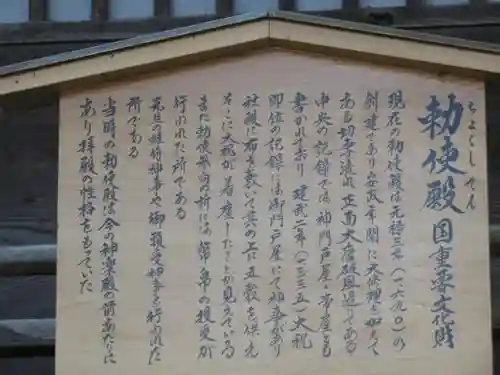 勅使殿 国重要文化財
ちょくしでん
現在の勅使殿は元禄三年(一六九〇)の
創建であり安政年間に大修理を加えて
ある切妻流れ正面大唐破風造りである
中央の記録では神門戸屋、帯屋とも
書かれており 建武二年(一三三五)大祝
即位の記録には御門戸屋にて神事があり
社殿に布を敷いて其の上に五穀を供え
そこに大祝が着座したことが見えている
また勅使参向の折には幣帛の授受が
行われた所である
元旦の神事や御頭受神事も行われた
所である
当時の勅使殿は今の神楽殿の前あたりに
あり拝殿の性格をもっていた